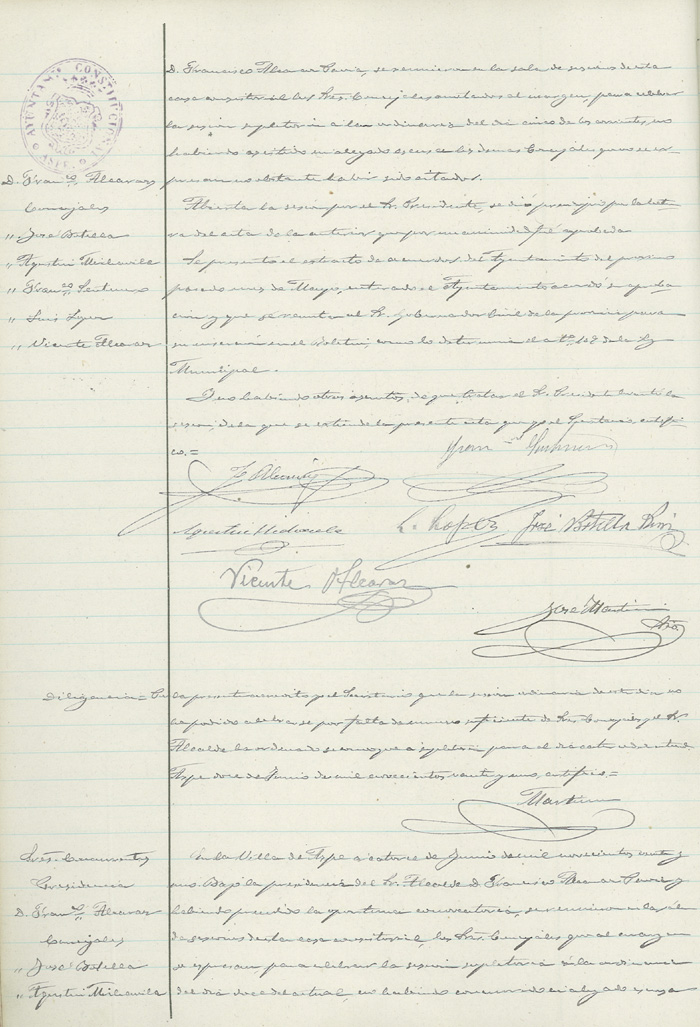 AYUNTAMIENTO CONSTITUCIONAL
ASPE
D. Francisco Alcaraz se reunieron en la sala de sesiones de esta
casa consistorial los Sres. Concejales anotados al margen, para celebrar
la sesión supletoria a la ordinaria del día cinco de los corrientes, no
habiendo asistido ni alegado escusa los demas Concejales que no se es-
presan no obstante haber sido citados.
D. Franco. Alcaraz
Concejales
„ José Botella
„ Agustin Mirasvila
„ Franco.
„ Luis
„ Vicente Alcaraz
Abierta la sesion por el Sr. Presidente, se dió principio por la lectu-
ra del acta de la anterior que por unanimidad fué aprobada
Se presentó el estracto de acuerdos del Ayuntamiento del proximo
pasado mes de Mayo, enterado el Ayuntamiento acordó su aproba-
cion y que se remita al Sr. Gobernador Civil de la provincia para
su insercion en el Boletin, como lo determina el arto. 109 de la Ley
Municipal.
Y no habiendo otros asuntos de que tratar el Sr. Presidente levantó la
sesion, de la que se estiende la presente acta que yo el Secretario certifi-
co.=
F. Alcaraz
Fran
Agustin
L. Lopez
José Botella
Vicente Alcaraz
José Martin
Srio
Diligencia = En la presente acredito yo el Secretario que la sesion ordinaria de este dia no
ha podido celebrarse por falta de numero suficiente de Sres. Concejales y el Sr.
Alcalde ha ordenado se convoque a supletoria para el dia catorce del actual.
Aspe doce de Junio de mil novecientos veinte y uno, certifico =
Martin
Sres. Concurrentes
Presidencia
D. Franco. Alcaraz
Concejales
„ José Botella
„ Agustin Mirasvila
En la Villa de Aspe a catorce de Junio de mil novecientos veinte y
uno. Bajo la presidencia del Sr. Alcalde D. Francisco Alcaraz y
habiendo precedido la oportuna convocatoria, se reunieron en la sala
de sesiones de esta casa consistorial, los Sres. Concejales que al margen
se espresan para celebrar la sesion supletoria á la ordinaria
del dia doce del actual, no habiendo concurrido ni alegado escusa